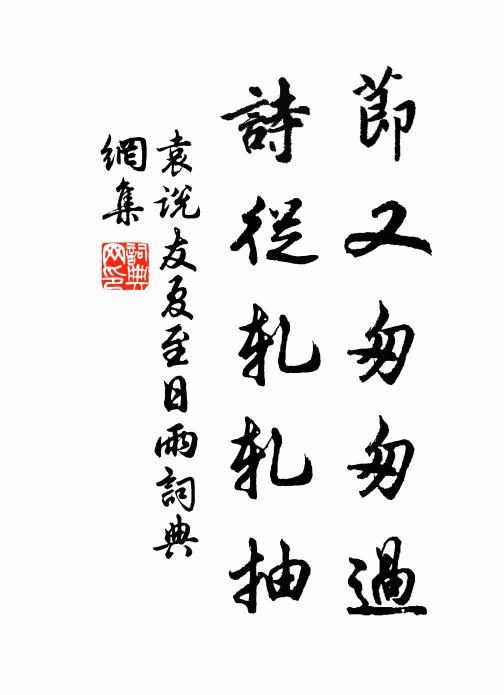 節又匆匆過
詩從軋軋抽
袁说友夏至日雨詞典
網集
詞典
网印